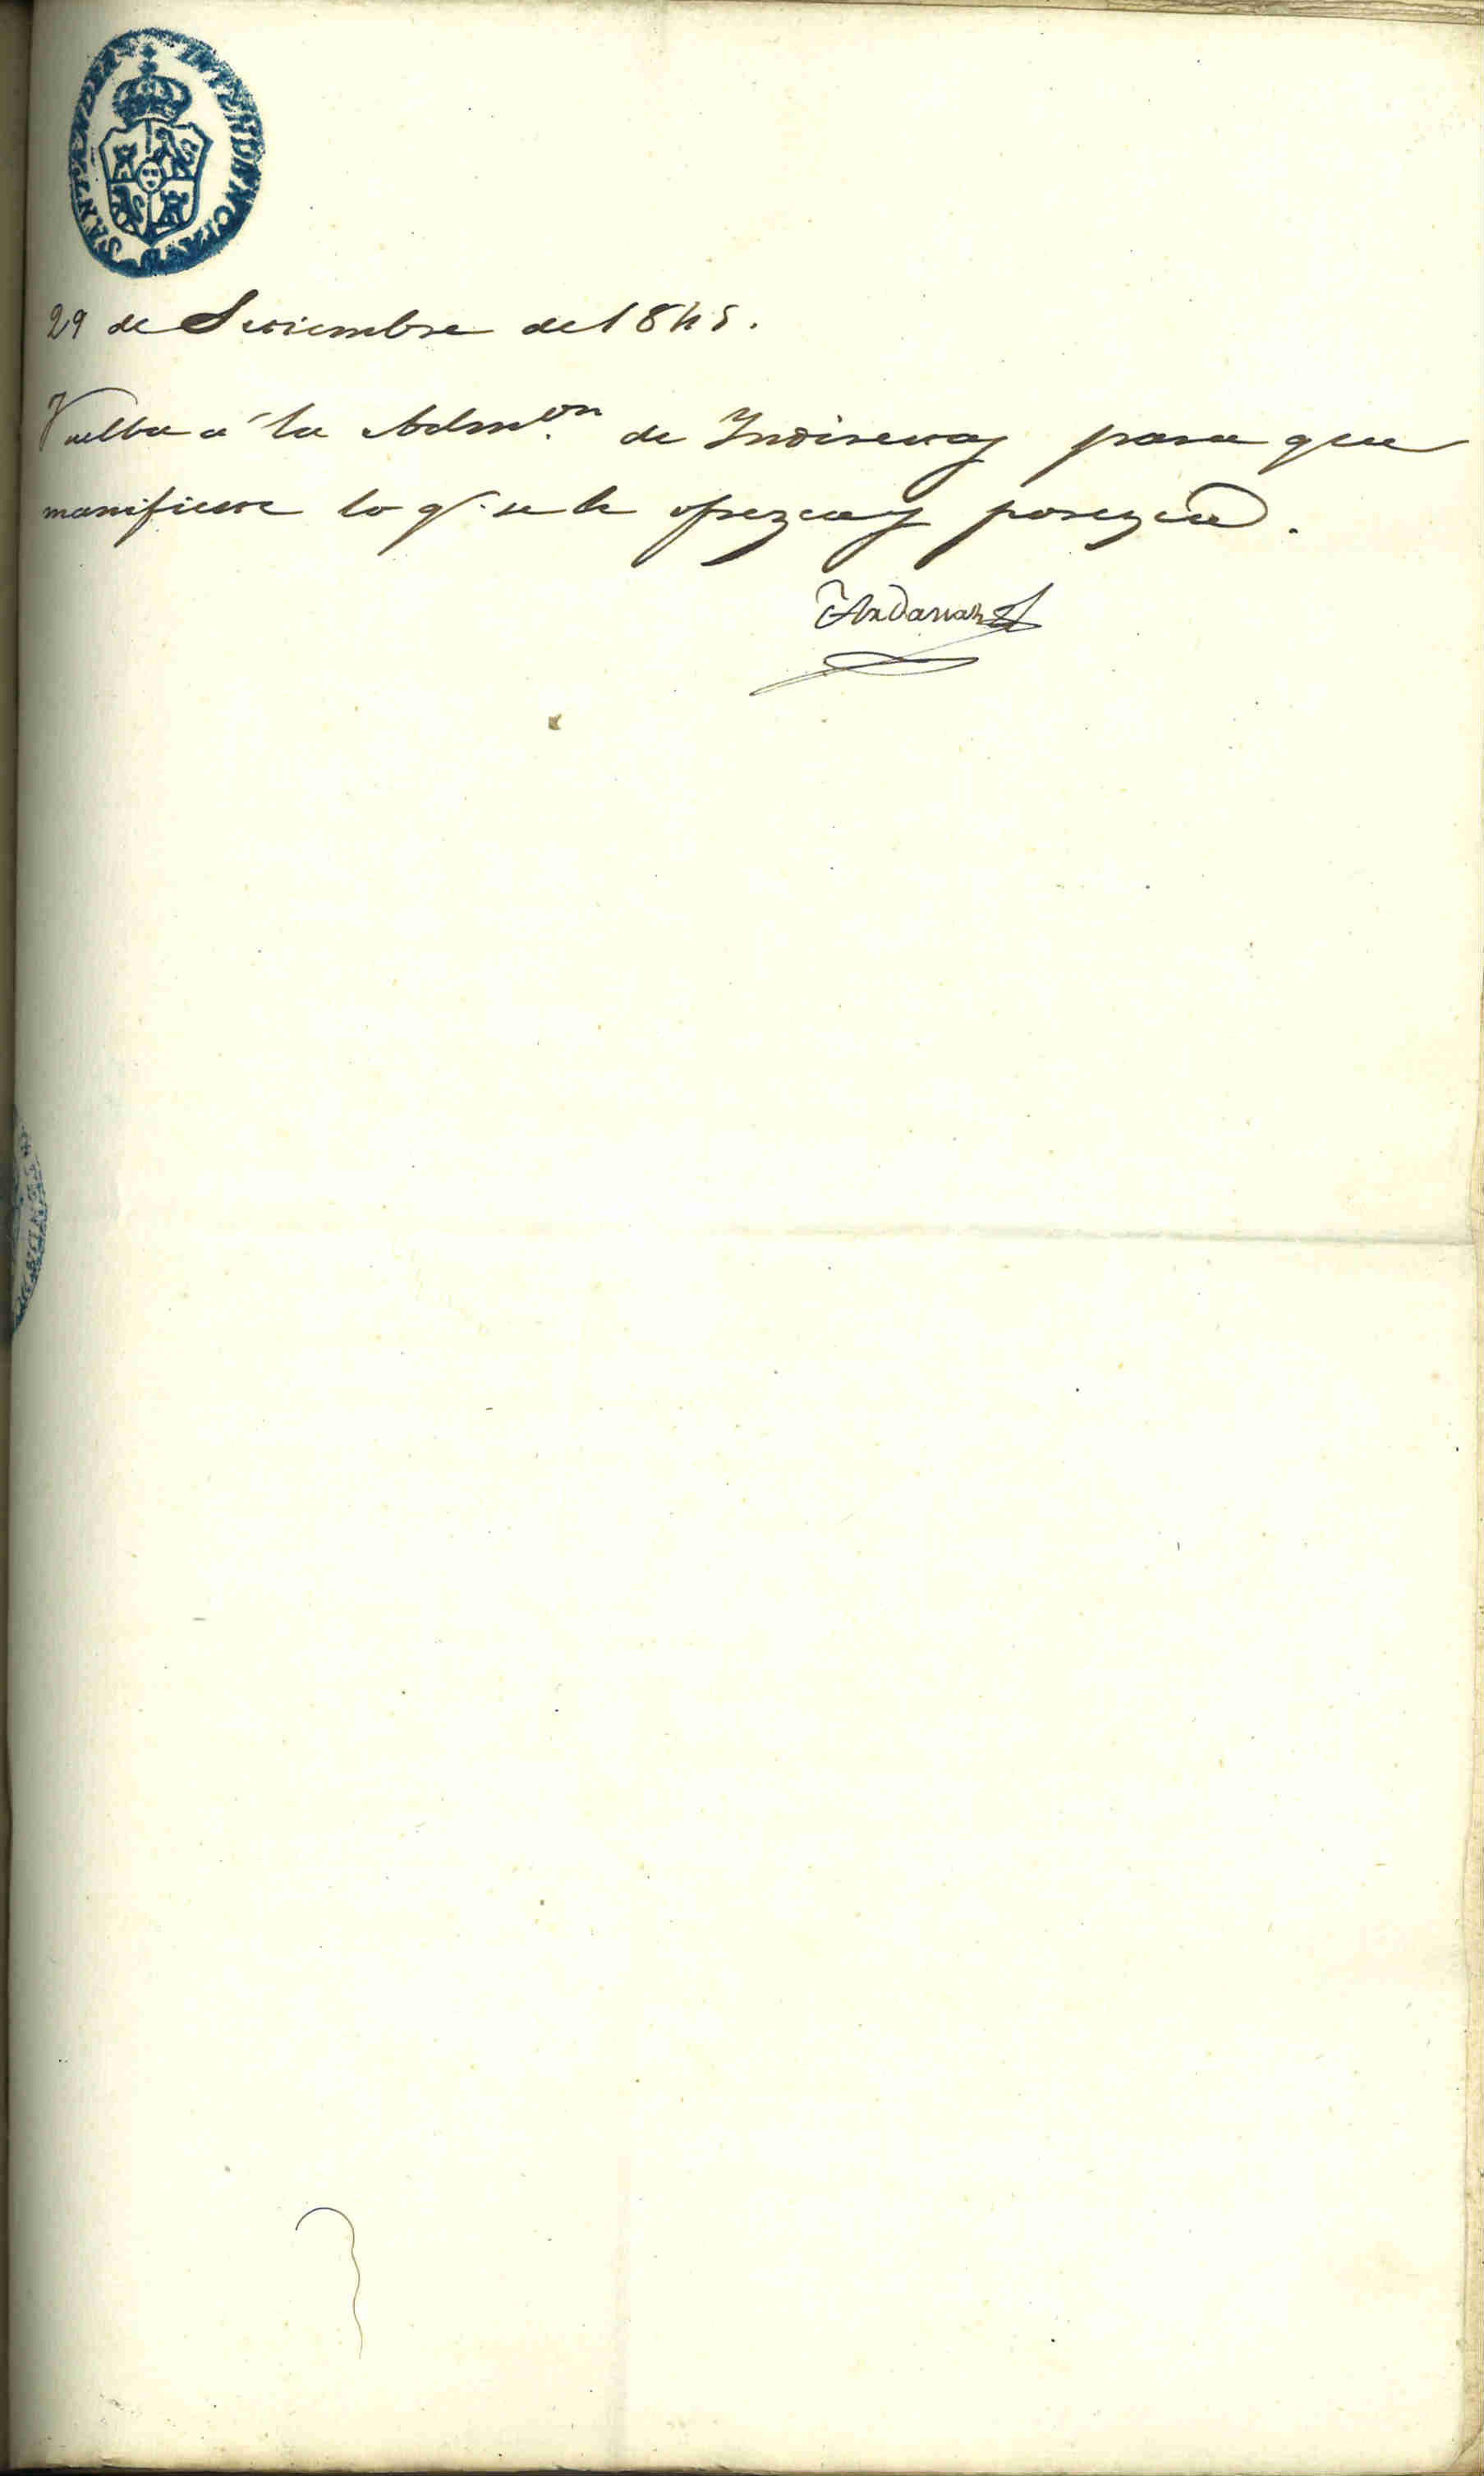 INTENDENCIA DE SANTANDER
29 de Setiembre de 1845.
Vuelba á la Admon. de Indirectas para que
manifieste lo q. se le ofrezca y parezca.